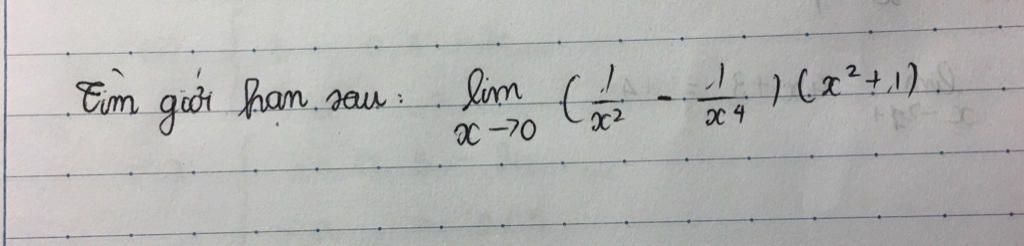 Tìm giới hạn sau: lim x→0 (1/x² - 1/x⁴)(x²+1)